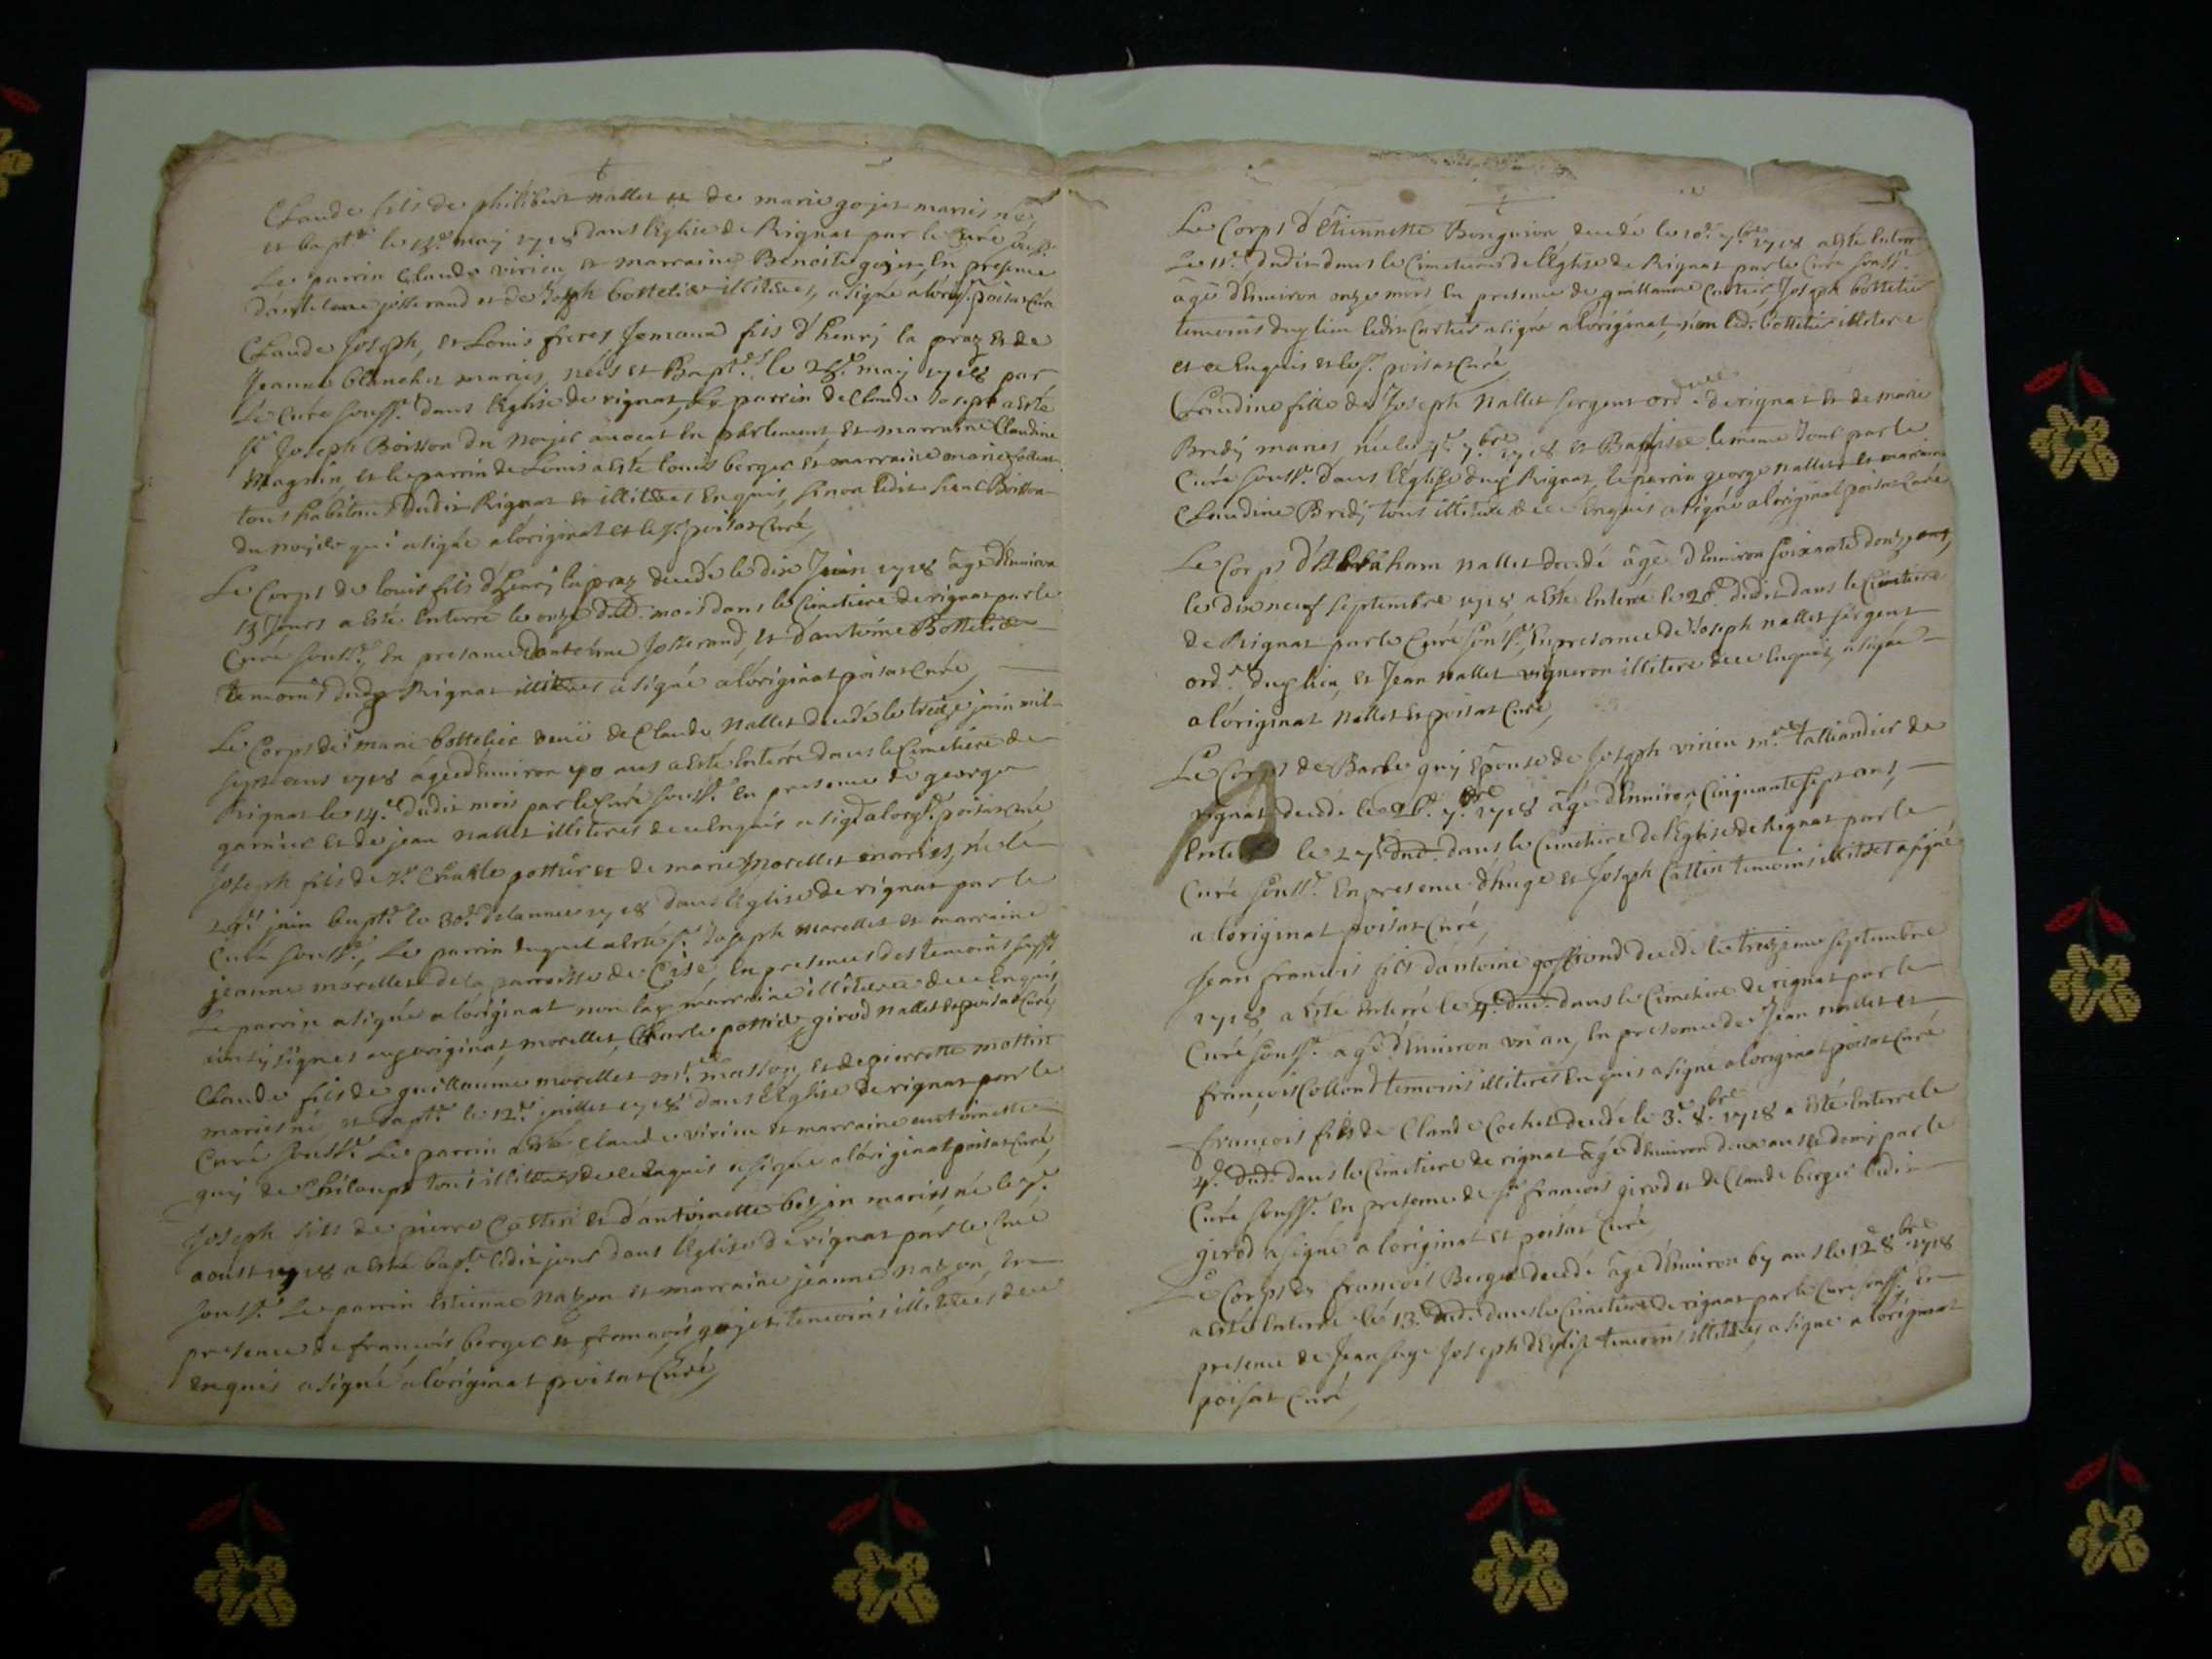 Claude fils de philibert nallet et de marie gojet mariés né,
et bapt.é le may 1718 dans l'Eglise de Rignat par le Curé souss.
Le parrin Claude virieu et marraine Benoite gojet, En presence
d'anthelme josserand et de Joseph bottelier illiteres, a signé a l'orig. poisat Curé
Claude Joseph, et Louis freres Jemeaux fils d'henry la praz et de
Jeanne blanchet mariés, nés et Bapt.és le 28.e may 1718 par
Le Curé souss.é dans l'Eglise de rignat, Le parrin de Claude Joseph a esté
s.r Joseph Boisson du noyer avocat En parlement, et marraine Claudine
Magnin, et le parrin de Louis a esté louis berger et marraine marie
tous habitans dudit Rignat et illiteres Enquis, sinon ledit sieur Boisson
du noyer qui a signé a l'original et le s.r poisat Curé,
Le Corps de louis fils d'henry la praz decedé le dix Juin 1718 âgé d'Environ
13 Jours a esté Enterré le onze dud. mois dans le Cimetiere de rignat par le
Curé souss.é, En presance d'antoine Josserand, et d'antoine Bottelier
temoins dudit Rignat illiteres a signé a l'original poisat Curé,
Le Corps de marie bottelier veuve de Claude nallet decedé le treize juin mil
sept cens 1718 âgée d'Environ 70 ans a esté Enterré dans le Cimetiere de
Rignat le 14.e dudit mois par le Curé souss.é En presence de george
garnier et de jean nallet illiteres de ce Enquis a signé a l'org.l poisat Curé
Joseph fils de s.r Charle pottier et de marie morellet mariés, né le
29.e juin bapt.é le 30.e de l'année 1718 dans l'Eglise de rignat par le
Curé souss.é, Le parrin duquel a esté s.r Joseph morellet et marraine
jeanne morellet de la parroisse de Cisé, En presences des temoins souss.és
Le parrin a signé a l'original non la marraine illiterée de ce Enquis
ainsy signés au original, morellet, Charle pottier, girod nallet et poisat Curé,
Claude fils de guillaume morellet m.e masson, et de pierrette mottin
mariés né et bapt.é le 12.e juillet 1718 dans l'Eglise de rignat par le
Curé souss.é Le parrin a esté Claude virieu et marraine antoinette
guy de Chiloup tous illiteres de ce Enquis a signé a l'original poisat Curé,
Joseph fils de pierre Castin et d'antoinette mariés né le
aoust 1718 a esté bapt.é ledit jour dans l'Eglise de rignat par le Curé
souss.é Le parrin Estienne nazon et marraine jeanne nazon, En
presence de françois berger et françois gojet temoins illiteres de ce
enquis a signé a l'original poisat Curé,
Le Corps d'Etiennette decedé le 10.e 7.bre 1718 a esté Enterré
Le 11.e dudit dans le Cimetiere de l'Eglise de Rignat par le Curé souss.é
âgé d'Environ onze mois En presence de guillaume Cartier, Joseph bottelier
temoins dud. lieu ledit Cartier a signé a l'original, non led. bottelier illitere
et ce Enquis et le s.r poisat Curé,
Claudine fille de Joseph nallet sergent ord.re de rignat et de marie
Bredy mariés, née le 7.bre 1718 et Baptisée le meme Jour par le
Curé souss.é dans l'Eglise dud. Rignat, le parrin george nallet et marraine
Claudine Bredy tous illiteres de ce Enquis a signé a l'original poisat Curé
Le Corps d'Abraham nallet decedé âgé d'Environ soixante douze ans,
le dix neuf septembre 1718 a esté Enterré le 20.e dudit dans le Cimetiere
de Rignat par le Curé souss.é, En presence de Joseph nallet sergent
ord.re dud. lieu, et Jean nallet vigneron illitere de ce Enquis, a signé
a l'original nallet et poisat Curé,
Le Corps de Barbe guy Epouse de Joseph virieu m.re talliandier de
rignat decedé le 26.e 7.bre 1718 âgé d'Environ Cinquante sept ans,
Enterré le 27.e dud. dans le Cimetiere de l'Eglise de Rignat par le
Curé souss.é En presence d'huge et Joseph Cattin temoins illiteres a signé
a l'original poisat Curé,
Jean francois fils d'antoine decedé le treizieme septembre
1718 a esté Enterré le dud. dans le Cimetiere de rignat par le
Curé souss.é agé d'Environ un an, En presence de Jean nallet et
françois Collond temoins illiteres Enquis a signé a l'original poisat Curé
françois fils de Claude Cochet decedé le 3.e 8.bre 1718 a esté Enterré le
4.e dud. dans le Cimetiere de rignat âgé d'Environ deux ans et demi par le
Curé souss.é En presence de s.r françois girod et de Claude berger ledit
girod a signé a l'original et poisat Curé
Le Corps de françois Berger decedé âgé d'Environ 67 ans le 12.e 8.bre 1718
a esté Enterré le 13.e dud. dans le Cimetiere de rignat par le Curé souss.é En
presence de Jean Joseph d'Eglise temoins illiteres a signé a l'original
poisat Curé,